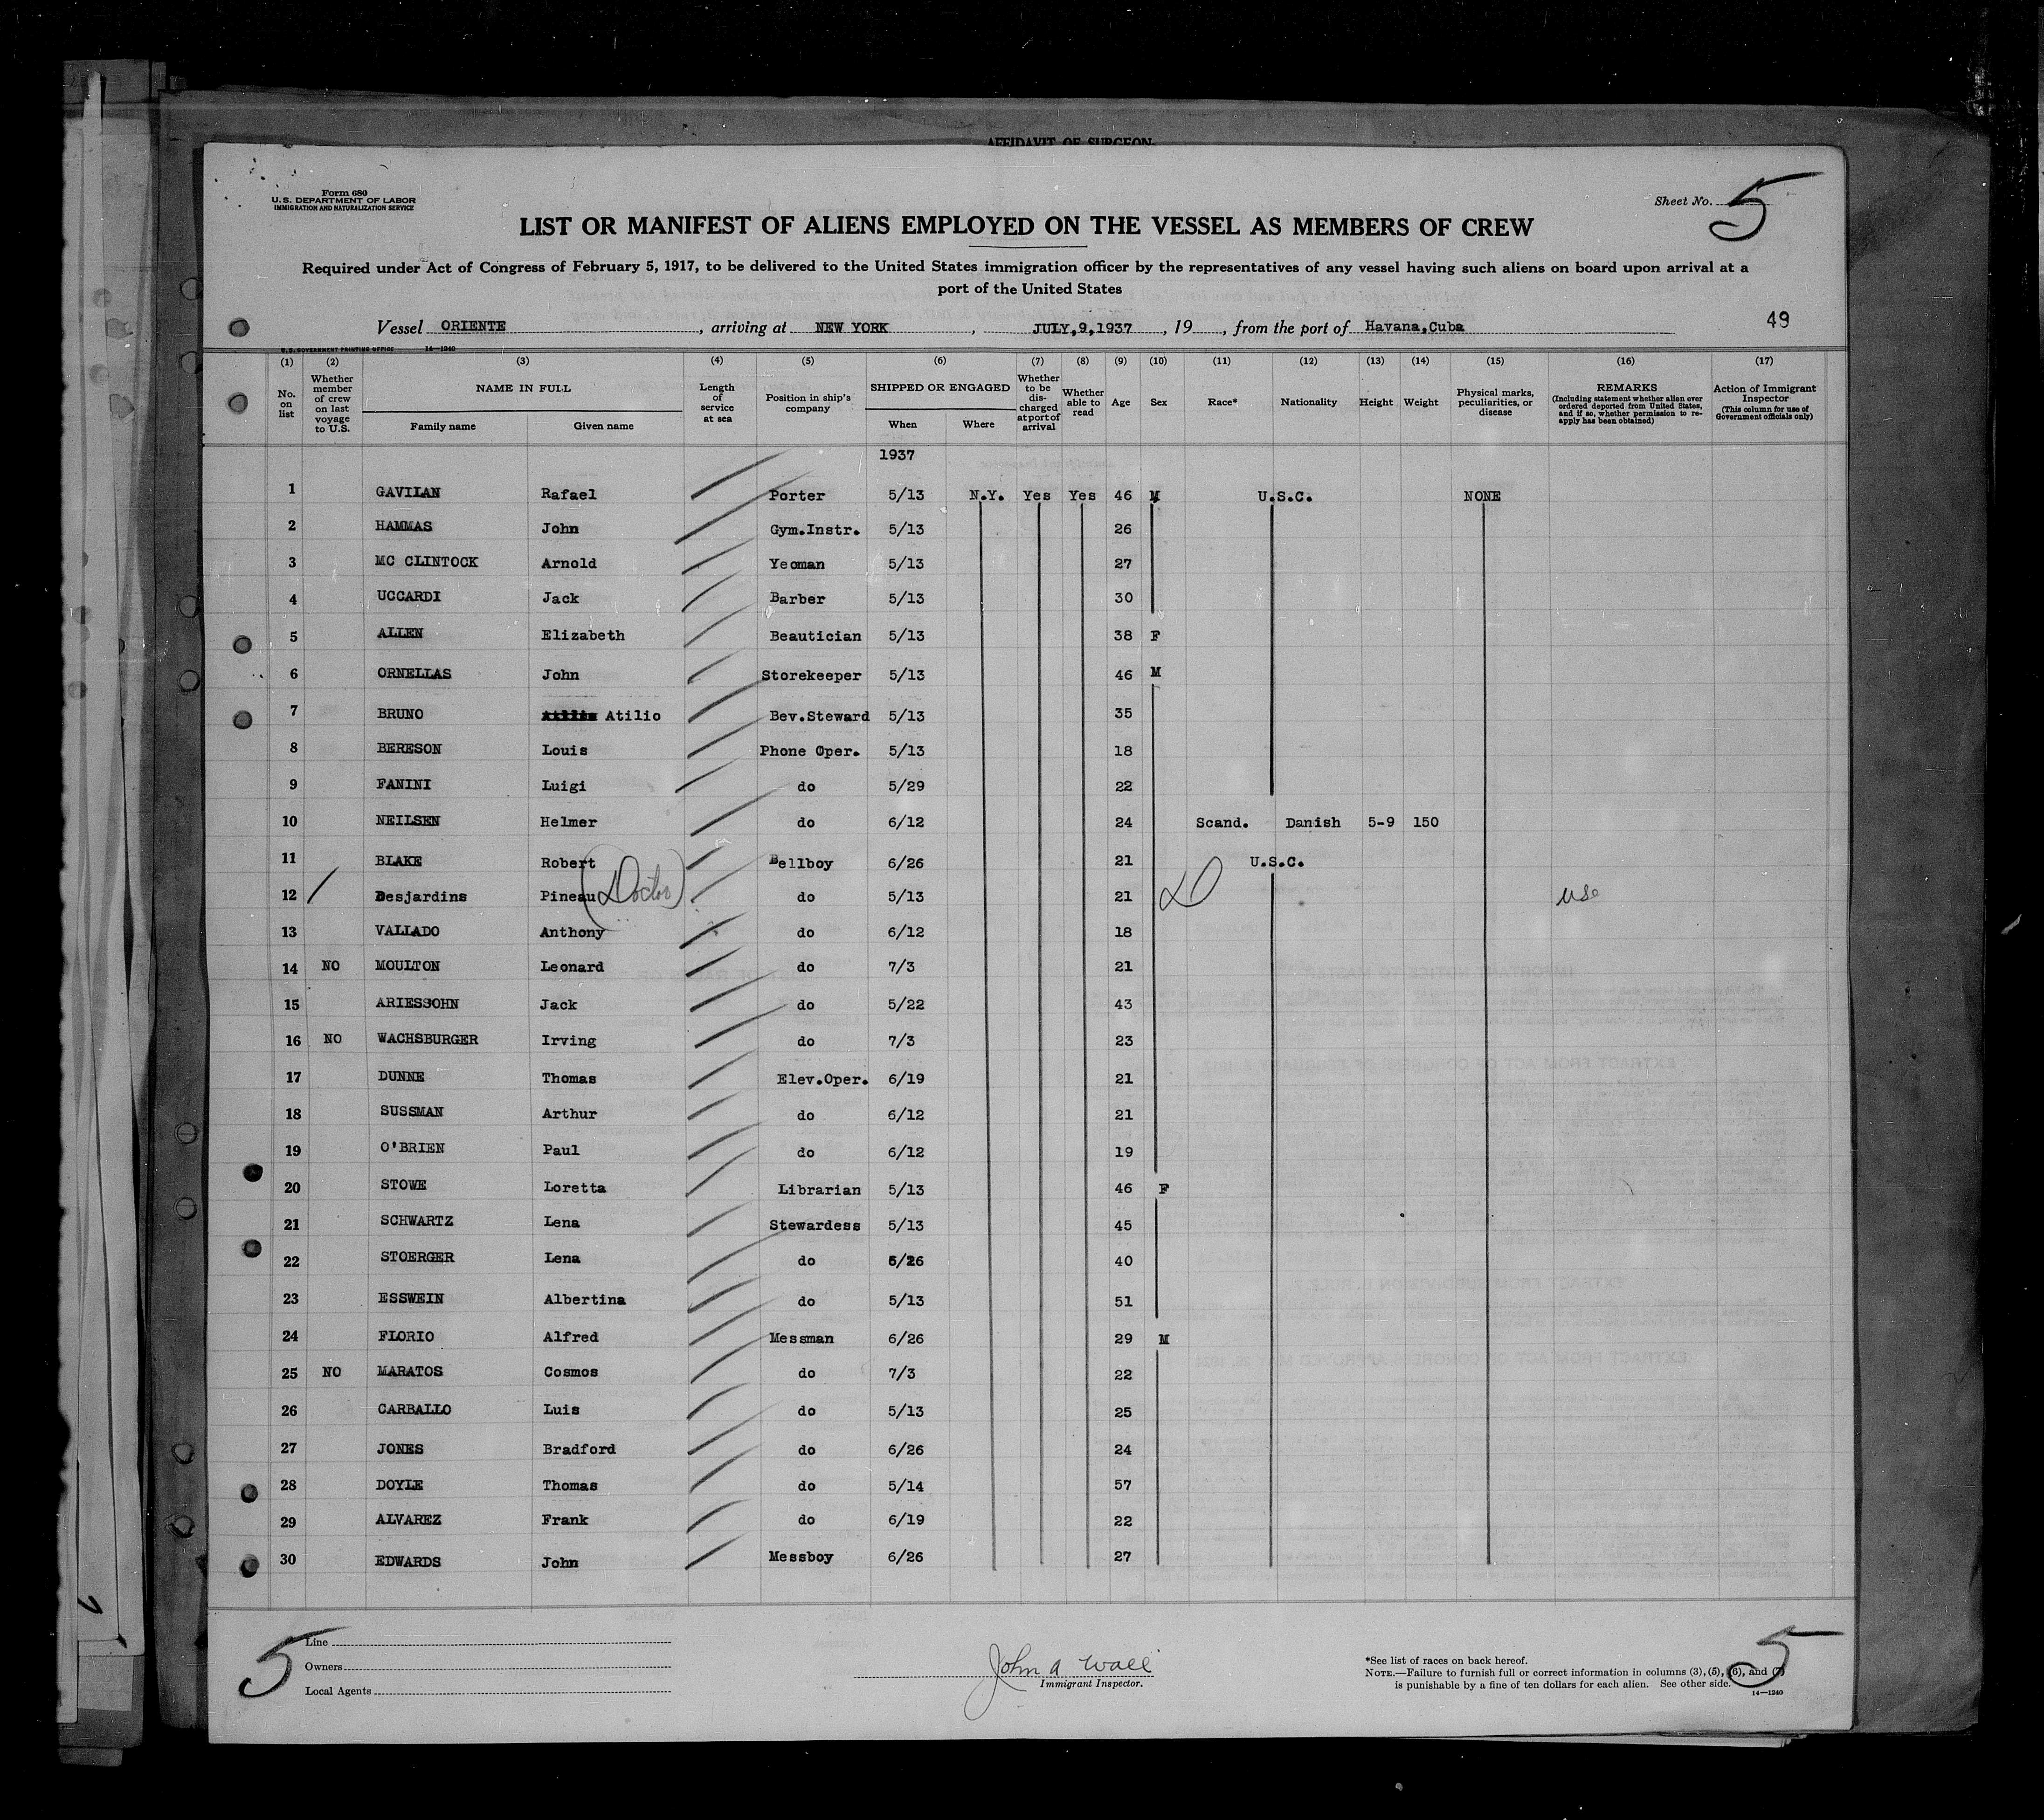 AFFIDAVIT OF SURGEON
Form 680
U. S. DEPARTMENT OF LABOR
IMMIGRATION AND NATURALIZATION SERVICE
Sheet No. 5
LIST OR MANIFEST OF ALIENS EMPLOYED ON THE VESSEL AS MEMBERS OF CREW
Required under Act of Congress of February 5, 1917, to be delivered to the United States immigration officer by the representatives of any vessel having such aliens on board upon arrival at a
port of the United States
Vessel ORIENTE, arriving at NEW YORK, JULY,9,1937, 19, from the port of Havana,Cuba
49
U. S. GOVERNMENT PRINTING OFFICE 14—1240
(1) (2) (3) (4) (5) (6) (7) (8) (9) (10) (11) (12) (13) (14) (15) (16) (17)
No. on list
Whether member of crew on last voyage to U.S.
NAME IN FULL
Family name
Given name
Length of service at sea
Position in ship's company
SHIPPED OR ENGAGED
When
Where
Whether to be discharged at port of arrival
Whether able to read
Age
Sex
Race*
Nationality
Height
Weight
Physical marks, peculiarities, or disease
REMARKS
(Including statement whether alien ever ordered deported from United States, and if so, whether permission to reapply has been obtained)
Action of Immigrant Inspector
(This column for use of Government officials only)
1937
1 GAVILAN Rafael Porter 5/13 N.Y. Yes Yes 46 M U.S.C. NONE
2 HAMMAS John Gym.Instr. 5/13 26
3 MC CLINTOCK Arnold Yeoman 5/13 27
4 UCCARDI Jack Barber 5/13 30
5 ALLEN Elizabeth Beautician 5/13 38 F
6 ORNELLAS John Storekeeper 5/13 46 M
7 BRUNO Atilio Bev.Steward 5/13 35
8 BERESON Louis Phone Oper. 5/13 18
9 FANINI Luigi do 5/29 22
10 NEILSEN Helmer do 6/12 24 Scand. Danish 5-9 150
11 BLAKE Robert Bellboy 6/26 21 U.S.C.
12 Desjardins Pineau (Doctor) do 5/13 21 usc
13 VALLADO Anthony do 6/12 18
14 NO MOULTON Leonard do 7/3 21
15 ARIESSOHN Jack do 5/22 43
16 NO WACHSBURGER Irving do 7/3 23
17 DUNNE Thomas Elev.Oper. 6/19 21
18 SUSSMAN Arthur do 6/12 21
19 O'BRIEN Paul do 6/12 19
20 STOWE Loretta Librarian 5/13 46 F
21 SCHWARTZ Lena Stewardess 5/13 45
22 STOERGER Lena do 6/26 40
23 ESSWEIN Albertina do 5/13 51
24 FLORIO Alfred Messman 6/26 29 M
25 NO MARATOS Cosmos do 7/3 22
26 CARBALLO Luis do 5/13 25
27 JONES Bradford do 6/26 24
28 DOYLE Thomas do 5/14 57
29 ALVAREZ Frank do 6/19 22
30 EDWARDS John Messboy 6/26 27
5
Line
Owners
Local Agents
John A Wall
Immigrant Inspector.
5
*See list of races on back hereof.
NOTE.—Failure to furnish full or correct information in columns (3), (5), (6), and (7)
is punishable by a fine of ten dollars for each alien. See other side.
14—1240